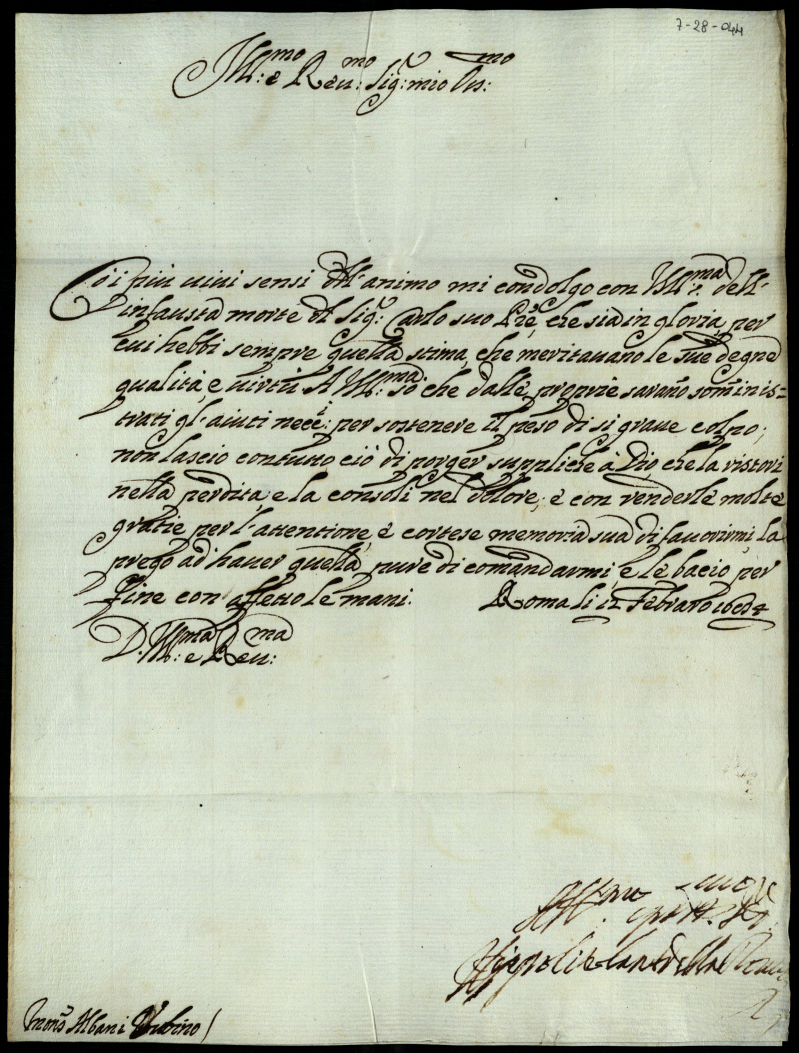 7-28-044
Ill:mo e Reu:mo Sig:r mio Oss:mo
Cō i piu uiui sensi dell'animo mi condolgo con V.S. Ill:ma dell'
infausta morte del Sig:r Carlo suo Pre, che sia in gloria, per
cui hebbi sempre quella stima, che meritauano le sue degne
qualità, e uirtù. A V.S. Ill:ma so che dalle proprie sarano somīnis=
trati gl'aiuti nece:i per sostenere il peso di si graue colpo;
non lascio contutto ciò di porger suppliche à Dio, che la ristori
nella perdita, e la consoli nel dolore; e con renderle molte
gratie per l'attentione, e cortese memoria sua di fauorirmi, la
prego ad hauer quella pure di comandarmi, e le bacio per
fine con affetto le mani. Roma li 12 Febraro 1684
D. V.S. Ill:ma e Reu:ma
Aff:mo
Hippolito Lante della Rouere
Mons Albani Urbino